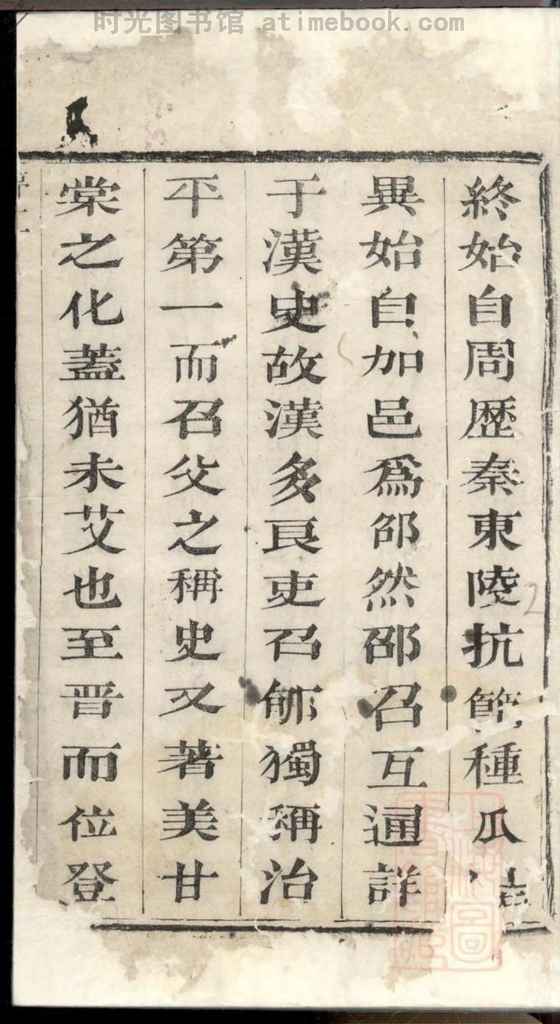 时光图书馆 atimebook.com
終始自周歷秦東陵抗節種瓜
異始自加邑爲邵然邵召互通詳
于漢史故漢多良吏召卹獨稱治
平第一而召父之稱史又著美甘
棠之化蓋猶未艾也至晋而位登